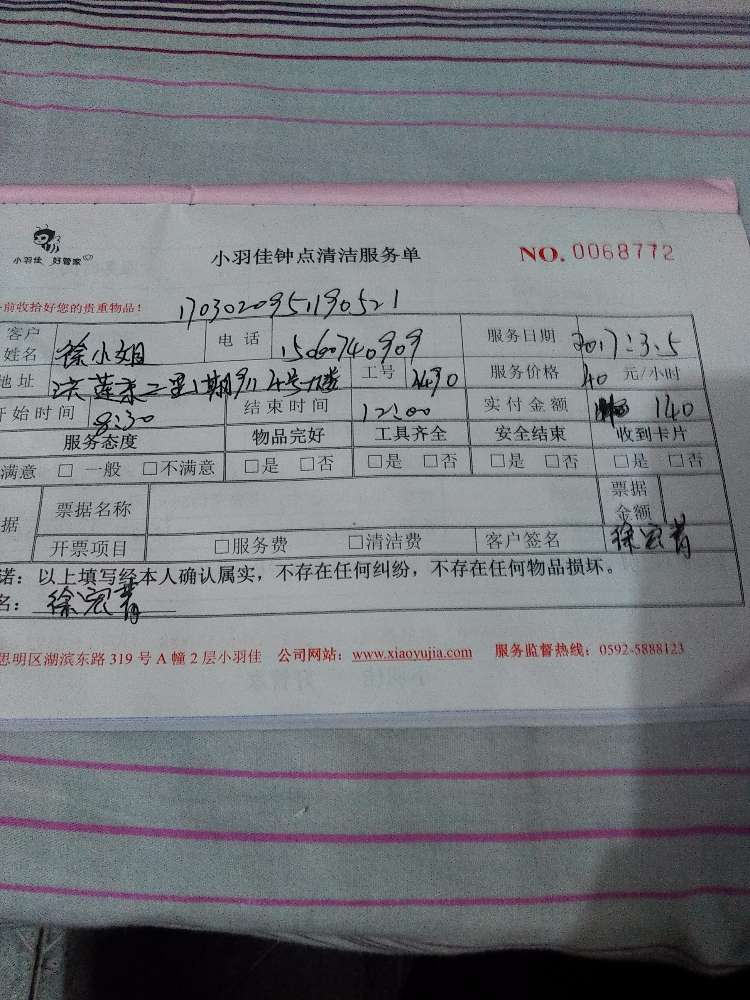 小羽佳 好管家
小羽佳钟点清洁服务单 NO. 0068772
前收拾好您的贵重物品! 1703020951190521
客户姓名 徐小姐 电话 15060740909 服务日期 2017.3.5
地址 洪莲东二里 4号 工号 2490 服务价格 40 元/小时
开始时间 8:30 结束时间 12:00 实付金额 140
服务态度 物品完好 工具齐全 安全结束 收到卡片
满意 □ 一般 □不满意 □是 □否 □是 □否 □是 □否 □是 □否
据 票据名称 票据金额
开票项目 □服务费 □清洁费 客户签名 徐宏菁
诺:以上填写经本人确认属实,不存在任何纠纷,不存在任何物品损坏。
名: 徐宏菁
思明区湖滨东路 319 号 A 幢 2 层小羽佳 公司网站:www.xiaoyujia.com 服务监督热线:0592-5888123